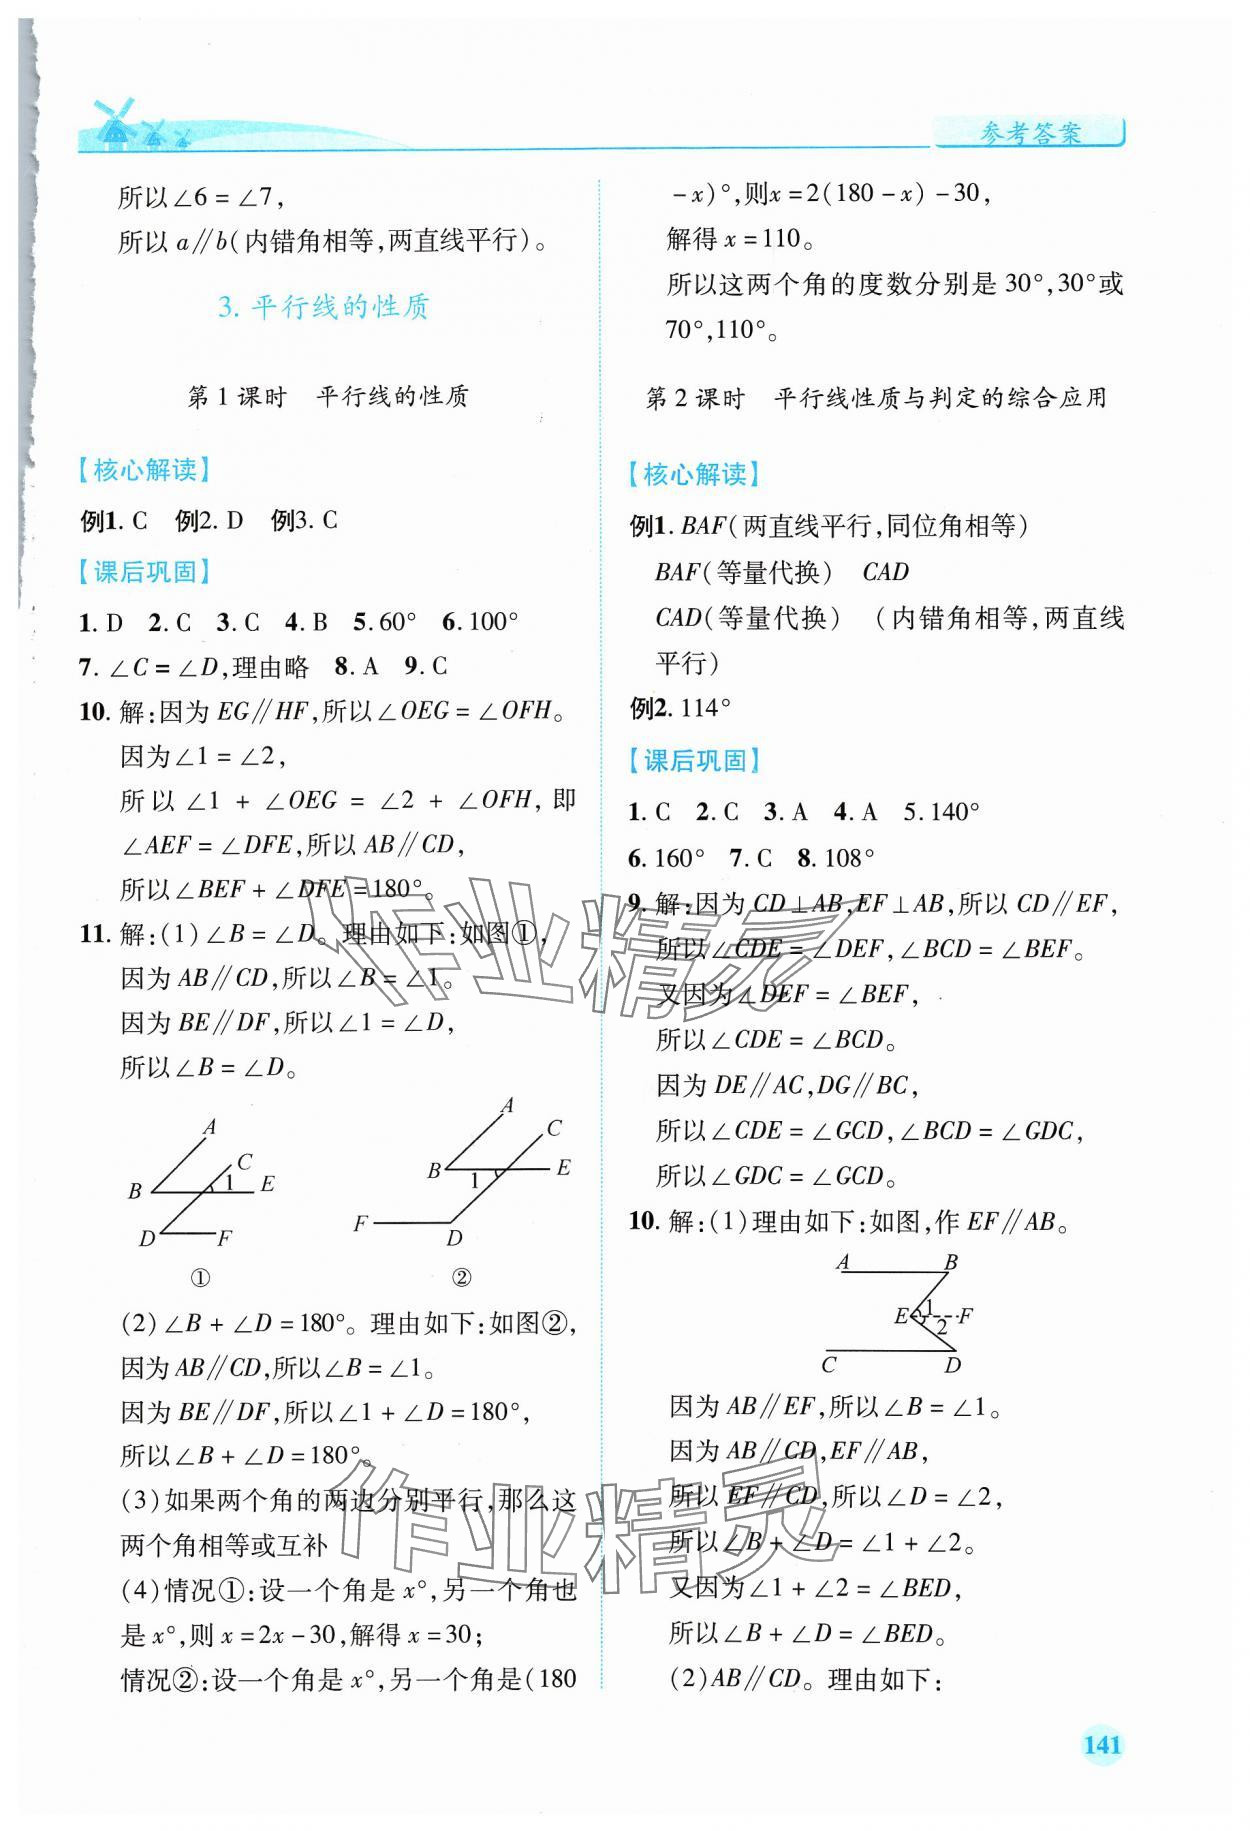 参考答案
所以∠6 = ∠7，
所以 a∥b(内错角相等，两直线平行)。
3. 平行线的性质
第 1 课时　平行线的性质
【核心解读】
例1. C　例2. D　例3. C
【课后巩固】
1. D　2. C　3. C　4. B　5. 60°　6. 100°
7. ∠C = ∠D，理由略　8. A　9. C
10. 解：因为 EG∥HF，所以∠OEG = ∠OFH。
因为∠1 = ∠2，
所以 ∠1 + ∠OEG = ∠2 + ∠OFH，即
∠AEF = ∠DFE，所以 AB∥CD，
所以∠BEF + ∠DFE = 180°。
11. 解：(1)∠B = ∠D。理由如下：如图①，
因为 AB∥CD，所以∠B = ∠1。
因为 BE∥DF，所以∠1 = ∠D，
所以∠B = ∠D。
A
C
B
1
E
D
F
①
A
C
B
1
E
F
D
②
(2)∠B + ∠D = 180°。理由如下：如图②，
因为 AB∥CD，所以∠B = ∠1。
因为 BE∥DF，所以∠1 + ∠D = 180°，
所以∠B + ∠D = 180°。
(3)如果两个角的两边分别平行，那么这
两个角相等或互补
(4)情况①：设一个角是 x°，另一个角也
是 x°，则 x = 2x - 30，解得 x = 30；
情况②：设一个角是 x°，另一个角是(180
- x)°，则x = 2(180 - x) - 30，
解得 x = 110。
所以这两个角的度数分别是 30°，30°或
70°，110°。
第 2 课时　平行线性质与判定的综合应用
【核心解读】
例1. BAF(两直线平行，同位角相等)
BAF(等量代换)　CAD
CAD(等量代换)　(内错角相等，两直线
平行)
例2. 114°
【课后巩固】
1. C　2. C　3. A　4. A　5. 140°
6. 160°　7. C　8. 108°
9. 解：因为 CD⊥AB，EF⊥AB，所以 CD∥EF，
所以∠CDE = ∠DEF，∠BCD = ∠BEF。
又因为∠DEF = ∠BEF，
所以∠CDE = ∠BCD。
因为 DE∥AC，DG∥BC，
所以∠CDE = ∠GCD，∠BCD = ∠GDC，
所以∠GDC = ∠GCD。
10. 解：(1)理由如下：如图，作 EF∥AB。
A
B
E
1
F
2
C
D
因为 AB∥EF，所以∠B = ∠1。
因为 AB∥CD，EF∥AB，
所以 EF∥CD，所以∠D = ∠2，
所以∠B + ∠D = ∠1 + ∠2。
又因为∠1 + ∠2 = ∠BED，
所以∠B + ∠D = ∠BED。
(2)AB∥CD。理由如下：
作业精灵
作业精灵
141